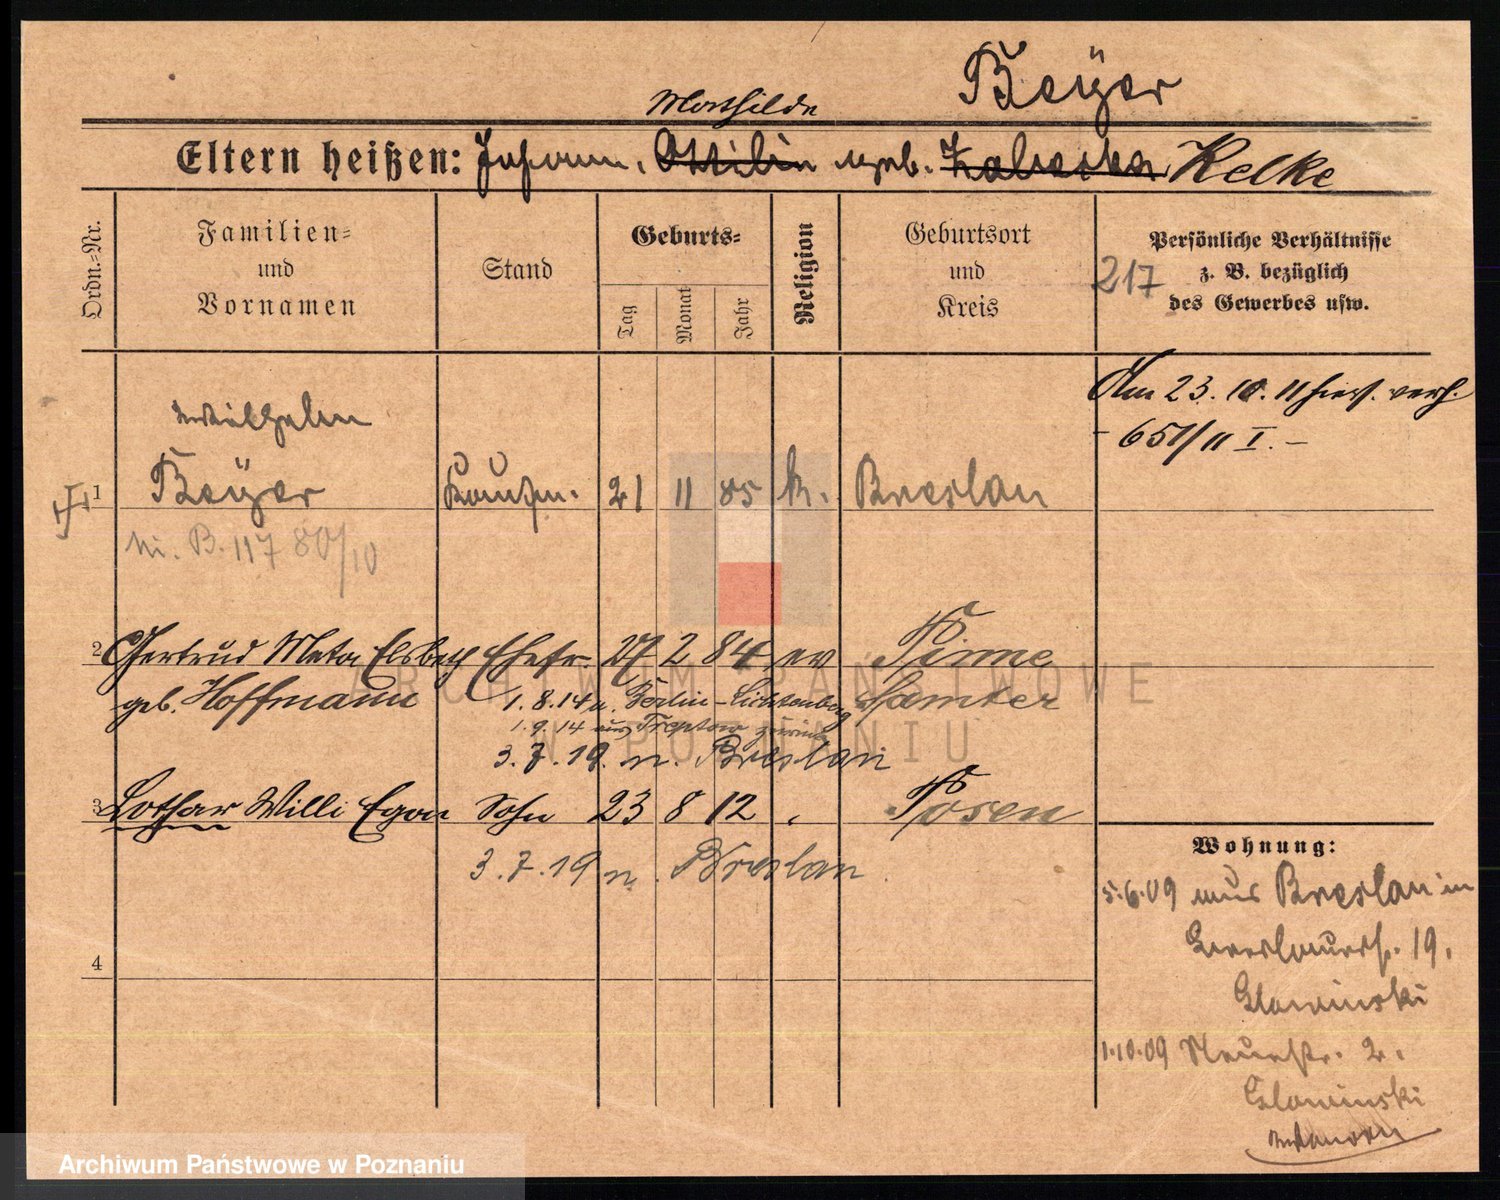 Beÿer
Mathilde
Eltern heißen: Johann, Ottilie geb. Kelke
Ordn.=Nr.
Familien=
und
Vornamen
Stand
Geburts=
Tag
Monat
Jahr
Religion
Geburtsort
und
Kreis
217
Persönliche Verhältnisse
z. B. bezüglich
des Gewerbes usw.
Am 23. 10. 11 hier. verh.
- 651/11 I. -
Wilhelm
1 Beÿer Kaufm. 21 11 85 k. Breslau
B. 117 80/10
2 Gertrud Meta Elsbeth Ehefr. 27 2 84 ev Pinne
geb. Hoffmann 1.8.14 n. Berlin-Lichtenberg Samter
1.9.14 aus Treptow zurück
3.7.19. n. Breslau
3 Lothar Willi Egon Sohn 23 8 12 Posen
3.7.19 n. Breslau
4
Wohnung:
5.6.09 aus Breslau in
19.
Glowinski
1.10.09 Neuestr. 2.
Glowinski
ARCHIWUM PAŃSTWOWE
W POZNANIU
Archiwum Państwowe w Poznaniu